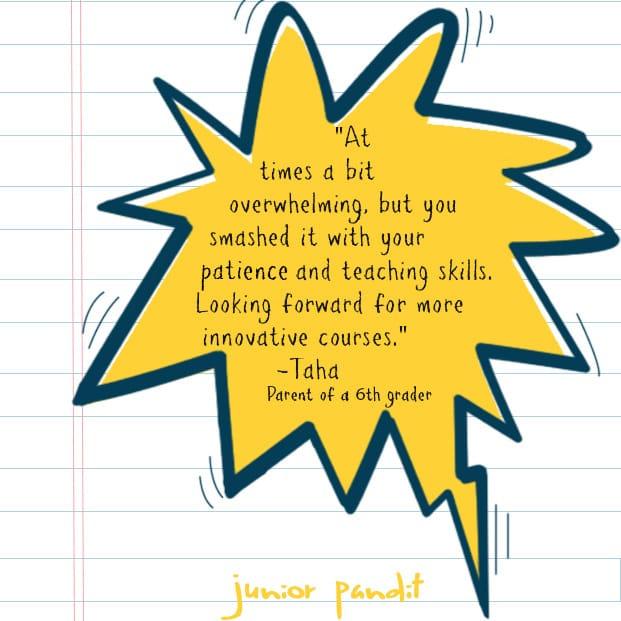 "At
times a bit
overwhelming, but you
smashed it with your
patience and teaching skills.
Looking forward for more
innovative courses."
-Taha
Parent of a 6th grader
junior pandit